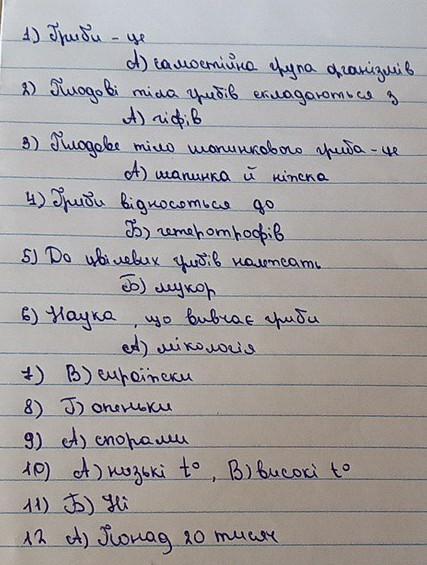 1) Гриби - це
А) самостійна група організмів
2) Плодові тіла грибів складаються з
А) гіфів
3) Плодове тіло шапинкового гриба - це
А) шапинка й ніжка
4) Гриби відносяться до
Б) гетеротрофів
5) До цвілевих грибів належать
Б) мукор
6) Наука, що вивчає гриби
А) мікологія
7) В) сироїжки
8) Г) опеньки
9) А) спорами
10) А) низькі t°, В) високі t°
11) Б) Ні
12 А) Понад 20 тисяч